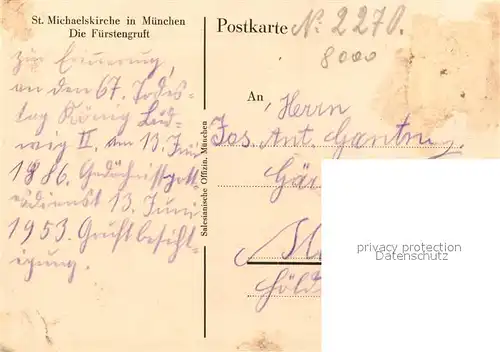 St. Michaelskirche in München
Die Fürstengruft
zur Erinnerung
an den 67. Todes-
tag König Lud-
wig II. am 13. Juni
1886. Gedächtnisgott-
esdienst 13. Juni
1953. Gruftbesicht-
igung.
Salesianische Offizin, München
Postkarte
No. 2270.
8000
An Herrn
Jos. Ant.
privacy protection
Datenschutz